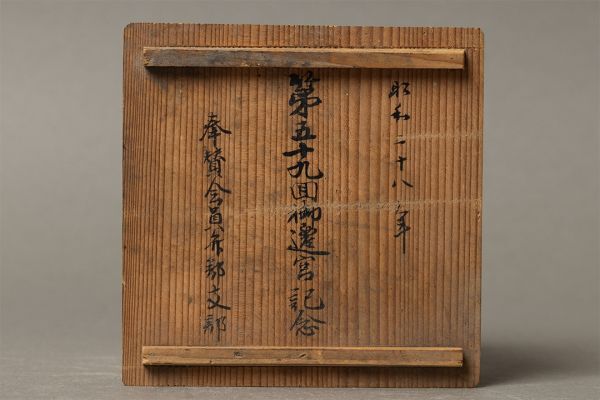 昭和二十八年
第五十九回御遷宮記念
奉賛会員弁郡支部